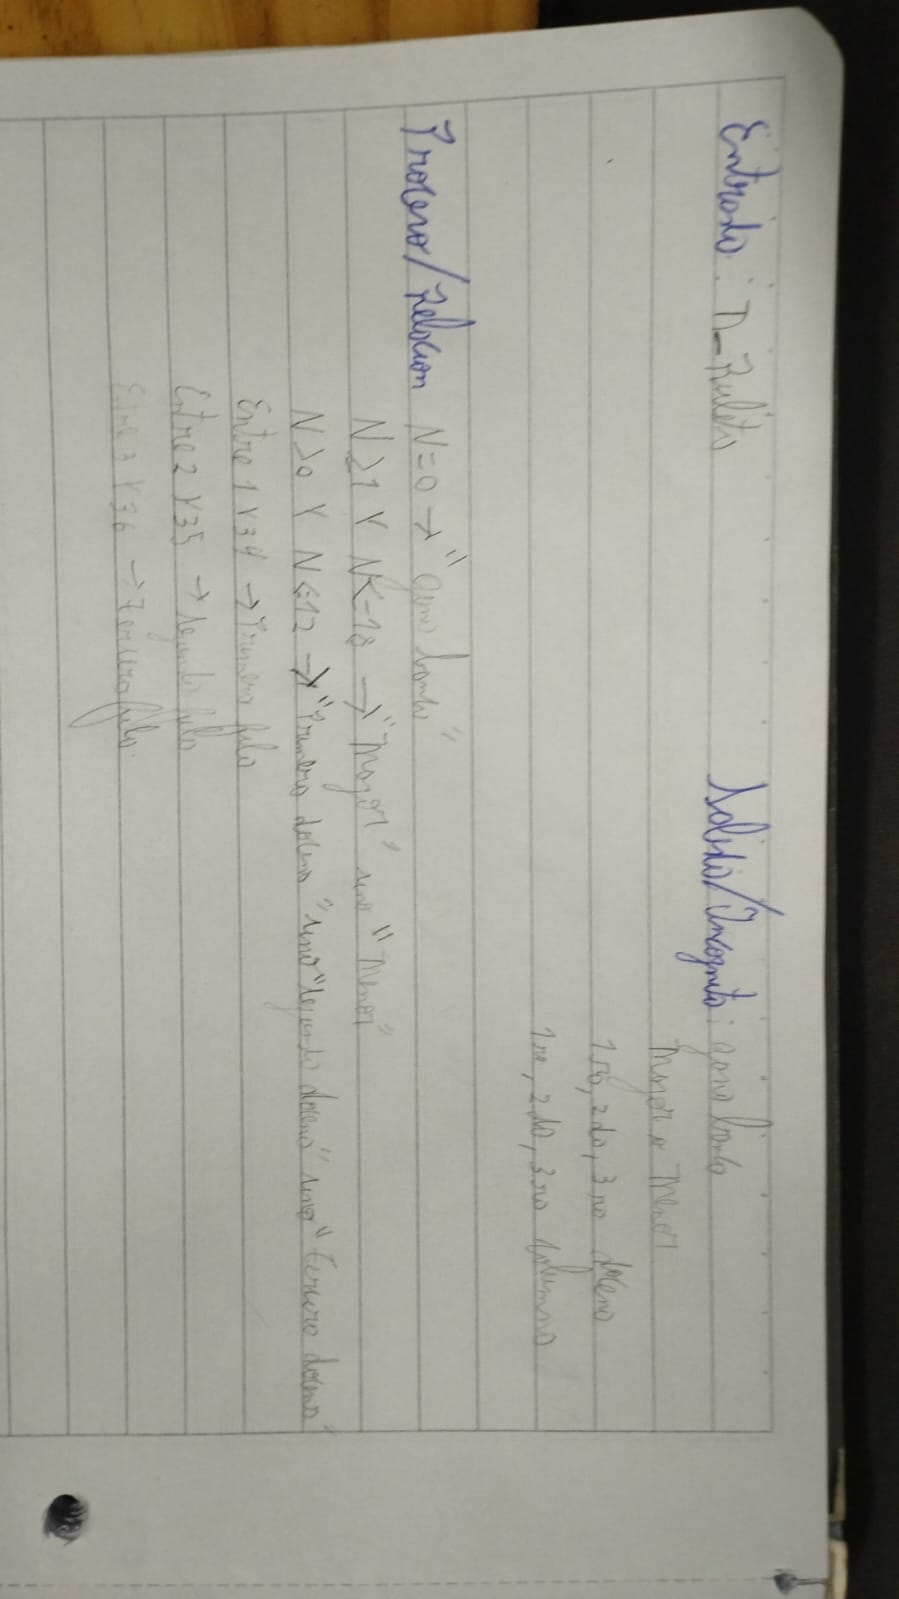 Entrada: n_Ruleta
Salida/Incognita: gana banca
Mayor o Menor
1ra, 2da, 3ra docena
1ra, 2da, 3ra columna
Proceso/Relacion N=0 → "gana banca"
N≥1 Y N<=18 → "Mayor" sino "Menor"
N>0 Y N<=12 → "Primera docena" sino "segunda docena" sino "tercera docena"
Entre 1 Y 34 → Primera fila
Entre 2 Y 35 → segunda fila
Entre 3 Y 36 → tercera fila